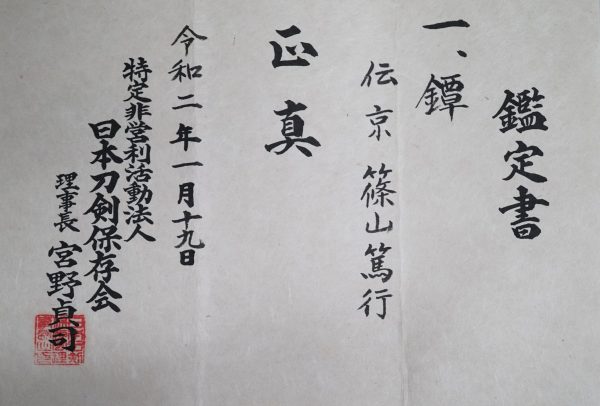 鑑定書
一、鐔
伝京篠山篤行
正真
令和二年一月十九日
特定非営利活動法人
日本刀剣保存会
理事長 宮野貞司